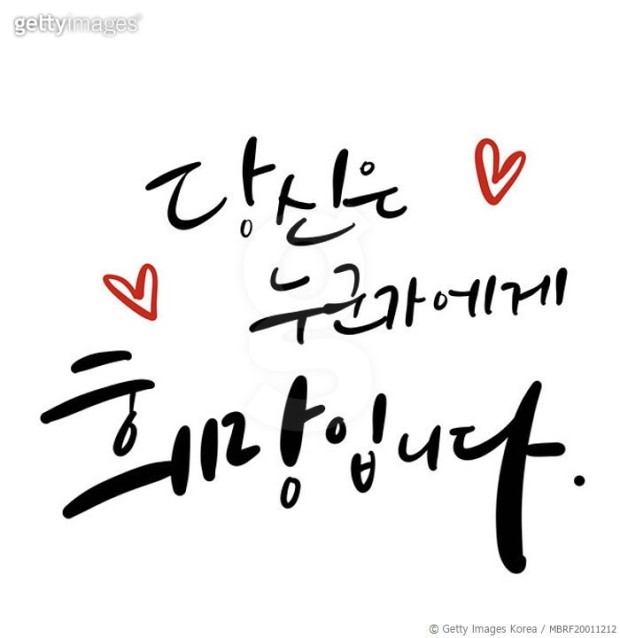 gettyimages
당신은
누군가에게
희망입니다.
© Getty Images Korea / MBRF20011212